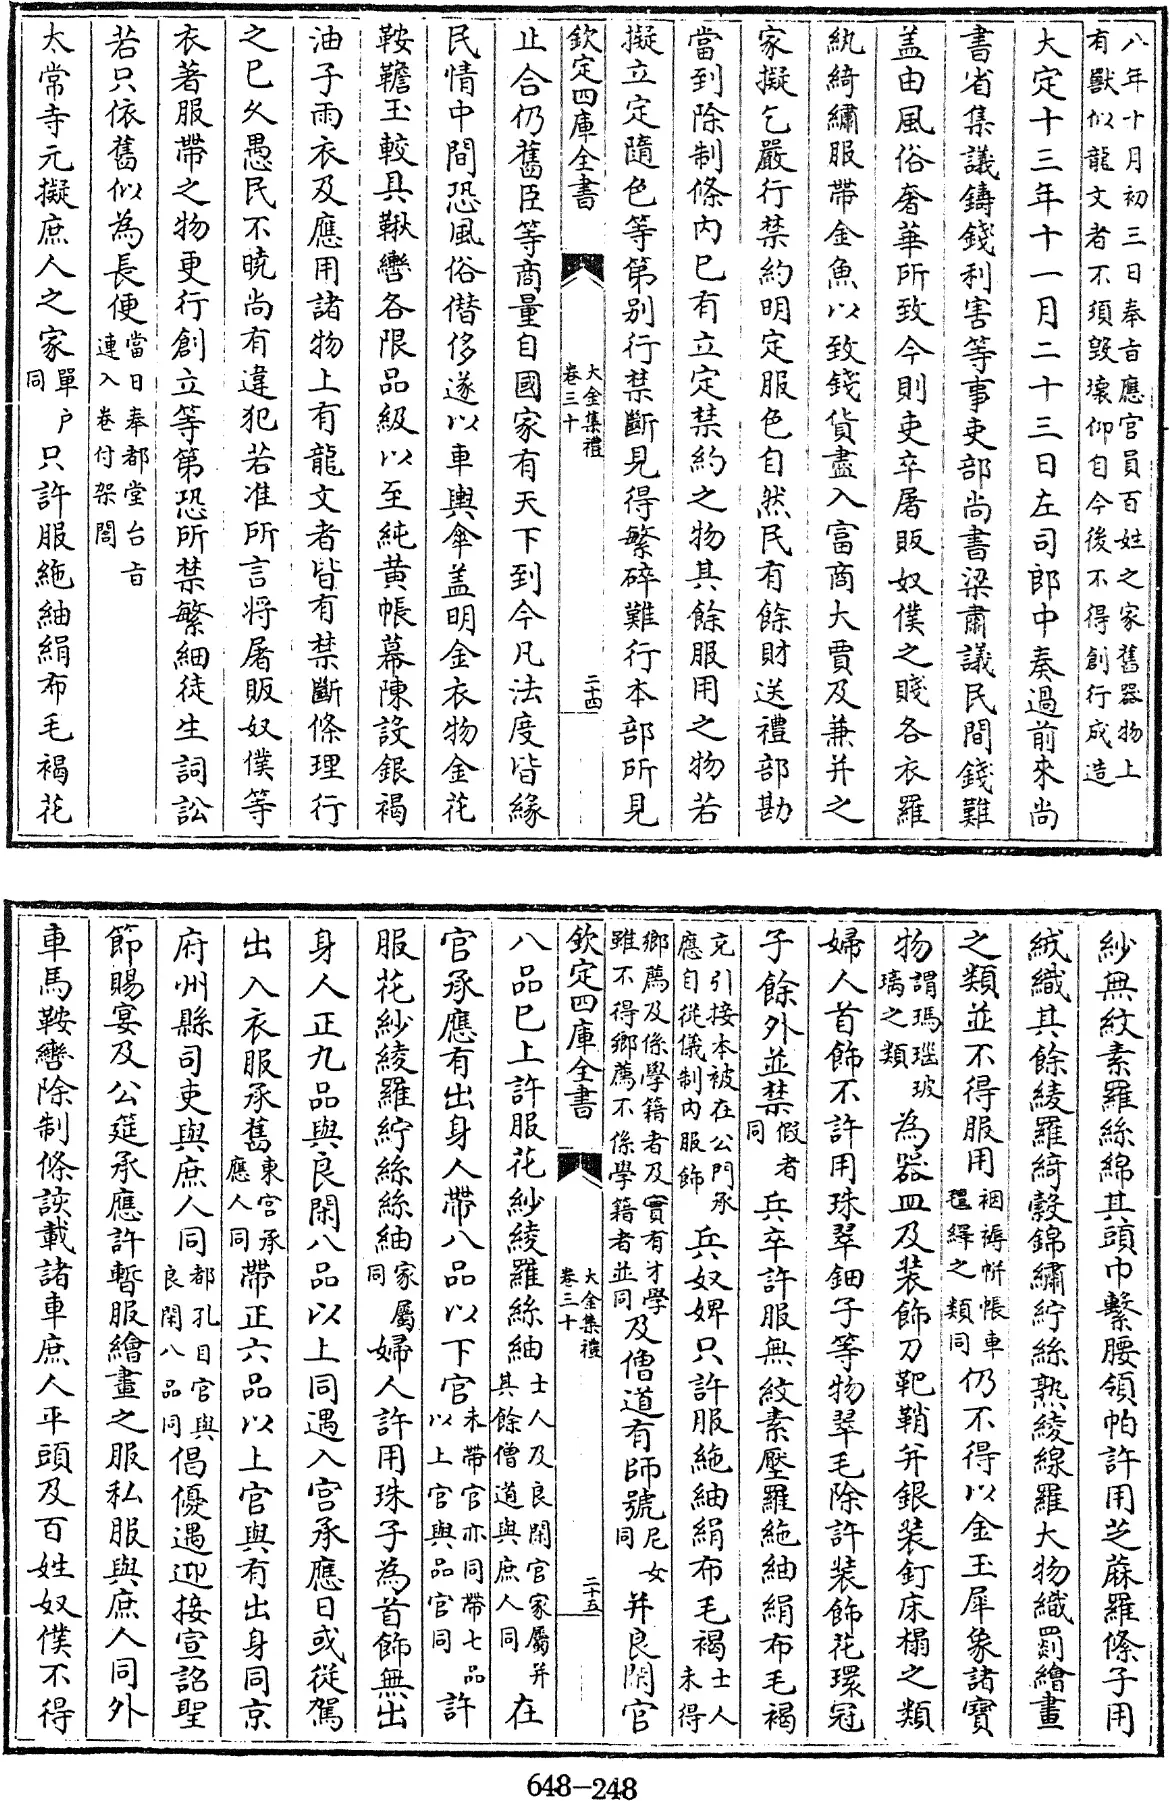 八年十月初三日奉㫖應官員百姓之家舊器物上
有獸似龍文者不須毀壞仰自今後不得創行成造
大定十三年十一月二十三日左司郎中奏過前來尚
書省集議鑄錢利害等事吏部尚書梁肅議民間錢難
盖由風俗奢華所致今則吏卒屠販奴僕之賤各衣羅
紈綺繡服帶金魚以致錢貨盡入富商大賈及兼并之
家擬乞嚴行禁約明定服色自然民有餘財送禮部勘
當到除制條内已有立定禁約之物其餘服用之物若
擬立定隨色等第别行禁斷見得繁碎難行本部所見
欽定四庫全書
大金集禮
卷三十
二十四
止合仍舊臣等商量自國家有天下到今凡法度皆緣
民情中間恐風俗僭侈遂以車輿傘盖明金衣物金花
鞍韂玉較具鞦轡各限品級以至純黄帳幕陳設銀褐
油子雨衣及應用諸物上有龍文者皆有禁斷條理行
之已乆愚民不曉尚有違犯若准所言将屠販奴僕等
衣著服帶之物更行創立等第恐所禁繁細徒生詞訟
若只依舊似為長便當日奉都堂台㫖
連入卷付架閣
太常寺元擬庶人之家單户
同只許服絁紬絹布毛褐花
紗無紋素羅絲綿其頭巾繫腰領帕許用芝蔴羅絛子用
絨織其餘綾羅綺縠錦繡紵絲熟綾線羅大物織罽繪畫
之類並不得服用裀褥帡帳車
氊繹之類同仍不得以金玉犀象諸寶
物謂瑪瑙玻
璃之類為器皿及装飾刀靶鞘并銀装釘床榻之類
婦人首飾不許用珠翠鈿子等物翠毛除許装飾花環冠
子餘外並禁假者
同兵卒許服無紋素壓羅絁紬絹布毛褐
充引接本被在公門承
應自從儀制内服飾兵奴婢只許服絁紬絹布毛褐士人
未得
鄉薦及係學籍者及實有才學
雖不得鄉薦不係學籍者並同及僧道有師號尼女
同并良閑官
欽定四庫全書
大金集禮
卷三十
二十五
八品已上許服花紗綾羅絲紬士人及良閑官家屬并
其餘僧道與庶人同在
官承應有出身人帶八品以下官未帶官亦同帶七品
以上官與品官同許
服花紗綾羅紵絲絲紬家屬
同婦人許用珠子為首飾無出
身人正九品與良閑八品以上同遇入宫承應日或從駕
出入衣服承舊東宫承
應人同帶正六品以上官與有出身同京
府州縣司吏與庶人同都孔目官與
良閑八品同倡優遇迎接宣詔聖
節賜宴及公筵承應許暫服繪畫之服私服與庶人同外
車馬鞍轡除制條該載諸車庶人平頭及百姓奴僕不得
648-248